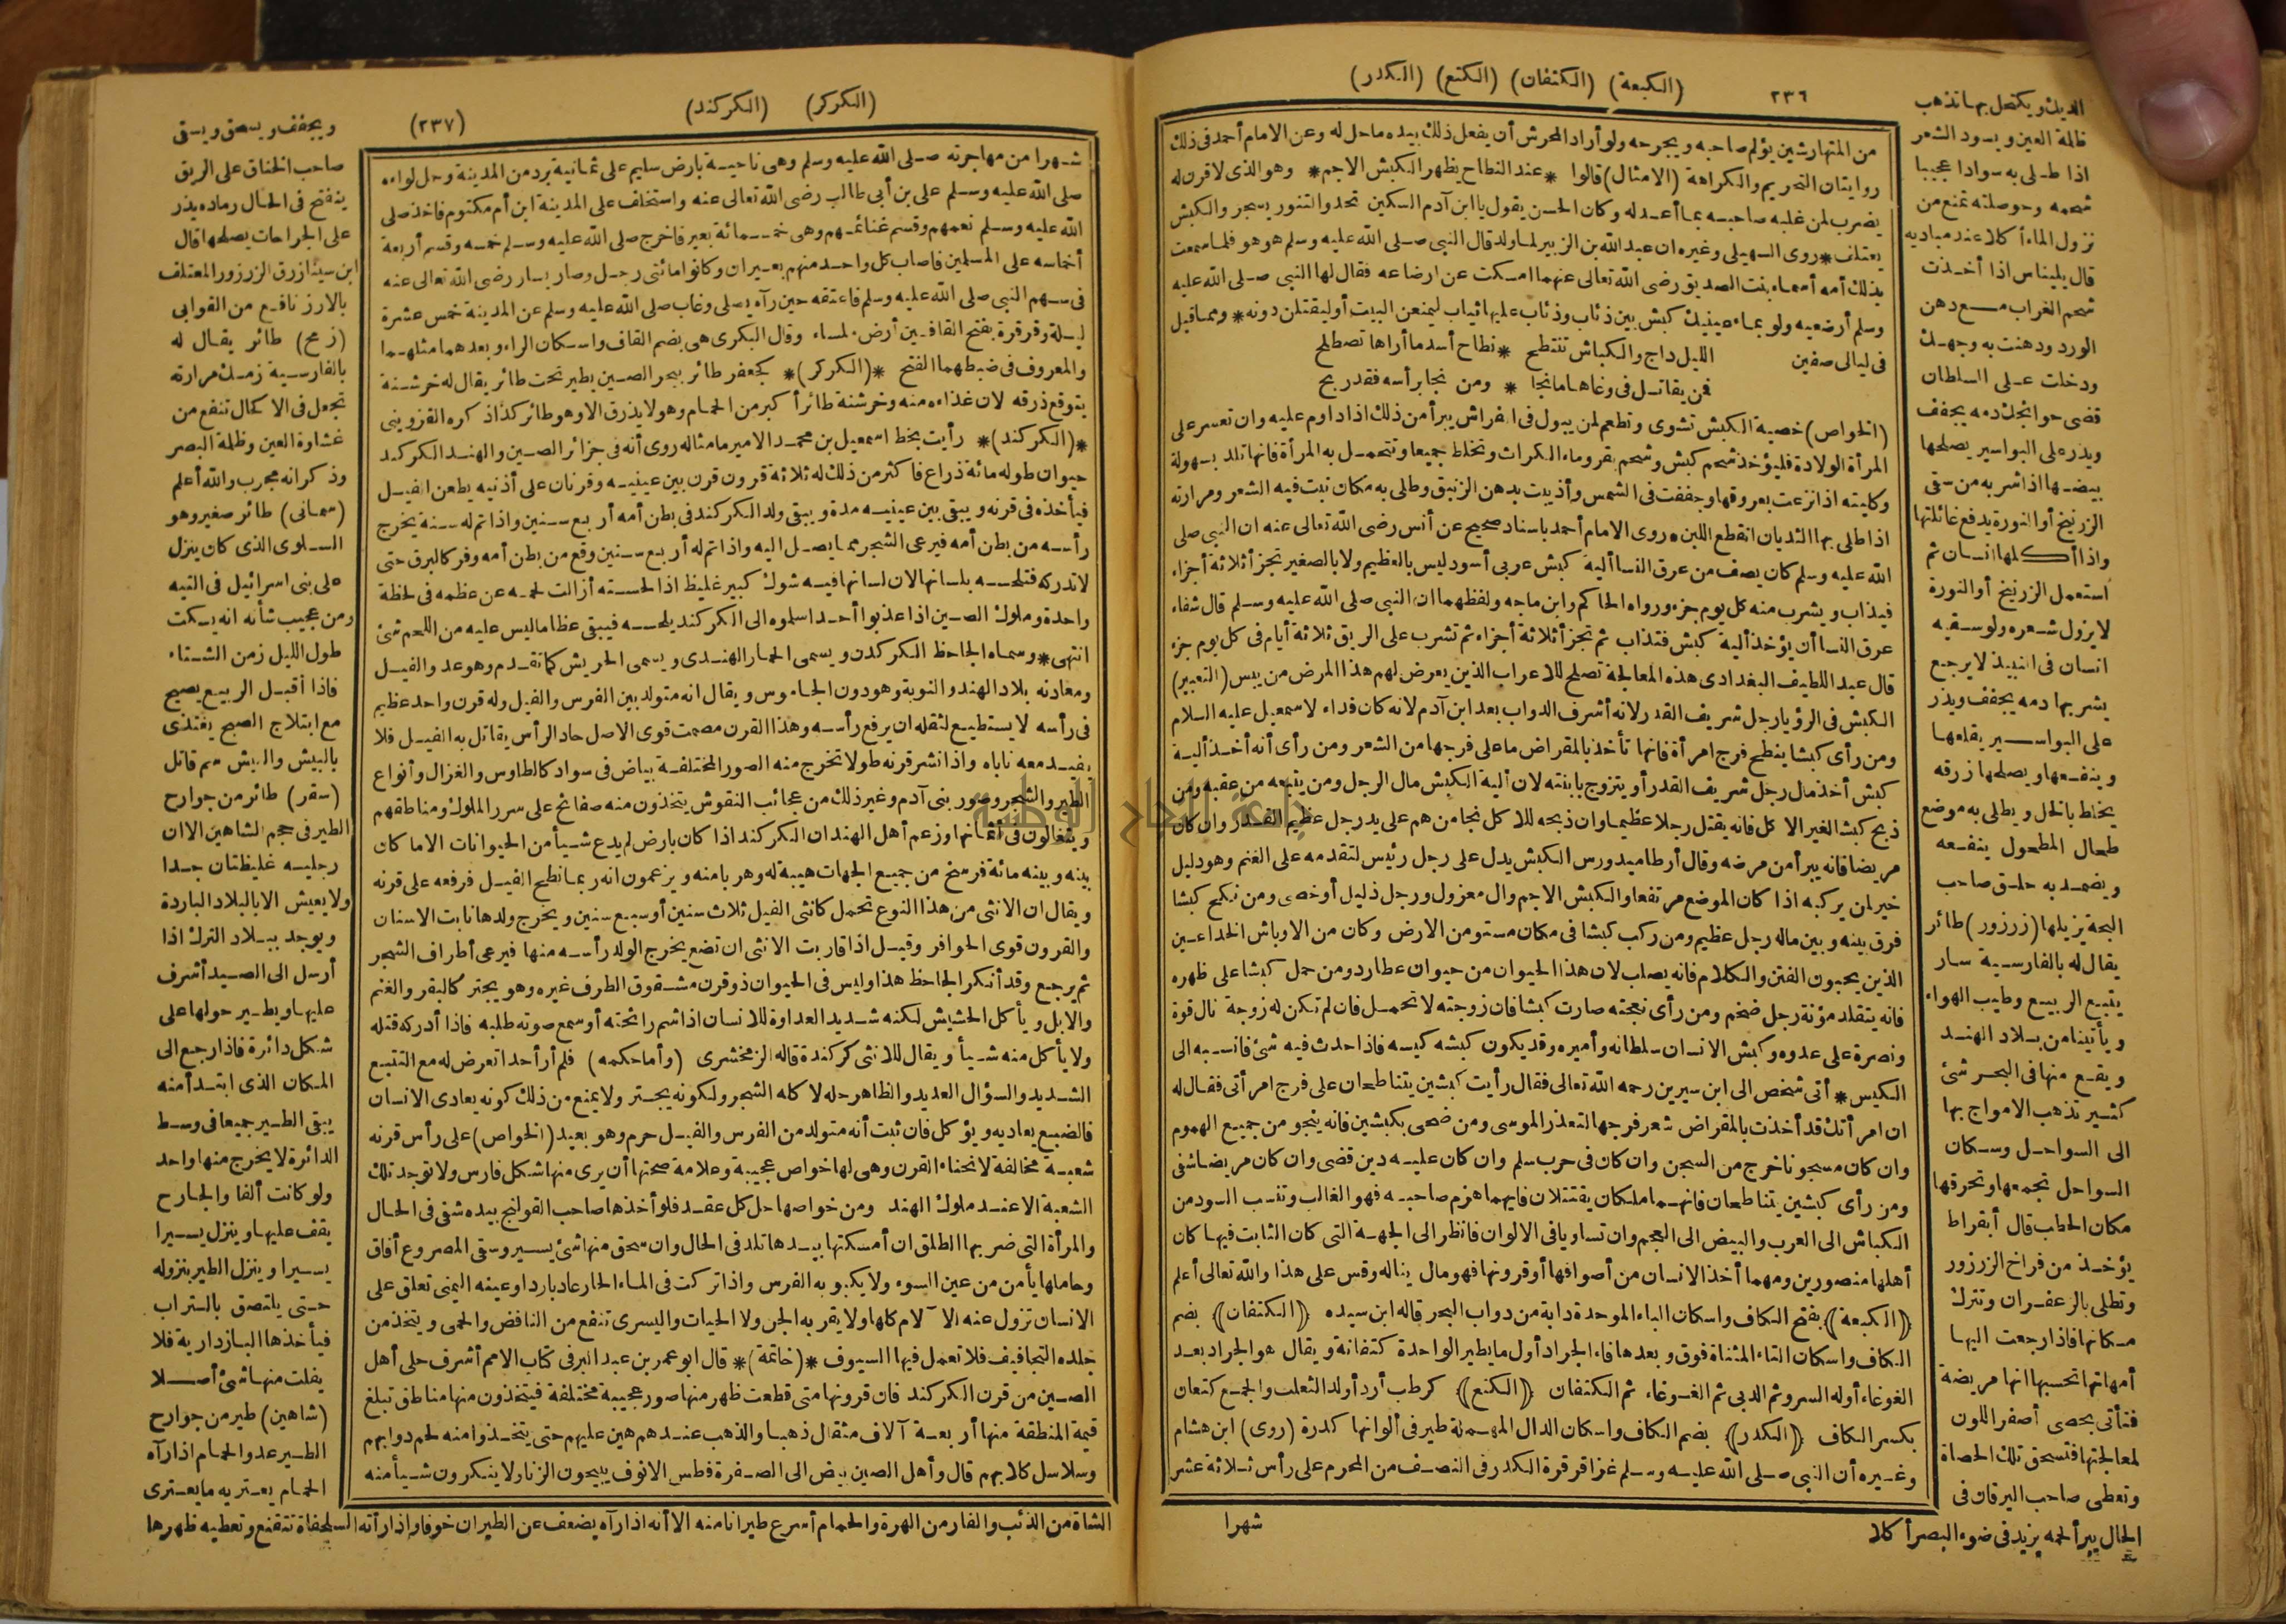 (الكبعة) (الكتفان) (الكتع) (الكدر)
٢٣٦
من المتهارشين يؤلم صاحبه ويجرحه ولو أراد المحرش أن يفعل ذلك بيده ماحل له وعن الامام أحمد فى ذلك
روايتان التحريم والكراهة (الامثال) قالوا * عند النطاح يظهر الكبش الاجم * وهو الذى لا قرن له
يضرب لمن غلبه صاحبه بما أعد له وكان الحسن يقول يا ابن آدم السكين تحد والتنور يسجر والكبش
يعتلف * روى السهيلى وغيره ان عبد الله بن الزبير لما ولد قال النبى صلى الله عليه وسلم هو هو فلما سمعت
بذلك أمه أسماء بنت الصديق رضى الله تعالى عنهما امسكت عن ارضاعه فقال لها النبى صلى الله عليه
وسلم أرضعيه ولو بماء عينيك كبش بين ذئاب وذئاب عليها ثياب ليمنعن البيت أو ليقتلن دونه * ومما قيل
فى ليالى صفين الليل داج والكباش تنتطح * نطاح أسد ما أراها تصطلح
فمن يقاتل فى وغاها ما نجا * ومن نجا برأسه فقد ربح
(الخواص) خصية الكبش تشوى وتطعم لمن يبول فى الفراش يبرأ من ذلك اذا داوم عليه وان تعسر على
المرأة الولادة فليؤخذ شحم كبش وشحم بقر وماء الكراث وتخلط جميعا وتتحمل به المرأة فانها تلد بسهولة
وكليته اذا نزعت بعروقها وجففت فى الشمس وأذيبت بدهن الزنبق وطلى به مكان نبت فيه الشعر ومرارته
اذا طلى بها الثديان انقطع اللبن * روى الامام أحمد باسناد صحيح عن أنس رضى الله تعالى عنه ان النبى صلى
الله عليه وسلم كان يصف من عرق النسا ألية كبش عربى أسود ليس بالعظيم ولا بالصغير تجزأ ثلاثة أجزاء
فيذاب ويشرب منه كل يوم جزء ورواه الحاكم وابن ماجه ولفظهما ان النبى صلى الله عليه وسلم قال شفاء
عرق النسا أن يؤخذ ألية كبش فتذاب ثم تجزأ ثلاثة أجزاء ثم تشرب على الريق ثلاثة أيام فى كل يوم جزء
قال عبد اللطيف البغدادى هذه المعالجة تصلح للاعراب الذين يعرض لهم هذا المرض من يبس (التعبير)
الكبش فى الرؤيا رجل شريف القدر لانه أشرف الدواب بعد ابن آدم لانه كان فداء لاسمعيل عليه السلام
ومن رأى كبشا ينطح فرج امرأة فانها تأخذ بالمقراض ما على فرجها من الشعر ومن رأى أنه أخذ ألية
كبش أخذ مال رجل شريف القدر أو يتزوج بابنته لان ألية الكبش مال الرجل ومن يتبعه من عقبه ومن
ذبح كبشا لغير الاكل فانه يقتل رجلا عظيما وان ذبحه للاكل نجا من هم على يد رجل عظيم القدر وان كان
مريضا فانه يبرأ من مرضه وقال أرطاميدورس الكبش يدل على رجل رئيس لتقدمه على الغنم وهو دليل
خير لمن يركبه اذا كان الموضع مرتفعا والكبش الاجم وال معزول ورجل ذليل أو خصى ومن نكح كبشا
فرق بينه وبين ماله رجل عظيم ومن ركب كبشا فى مكان مستو من الارض وكان من الاوباش الخداعين
الذين يحبون الفتن والكلام فانه يصاب لان هذا الحيوان من حيوان عطارد ومن حمل كبشا على ظهره
فانه يتقلد مؤنة رجل ضخم ومن رأى نعجته صارت كبشا فان زوجته لا تحمل فان لم تكن له زوجة نال قوة
ونصرة على عدوه وكبش الانسان سلطانه وأميره وقد يكون كبشه كيسه فاذا حدث فيه شئ فانسبه الى
الكيس * أتى شخص الى ابن سيرين رحمه الله تعالى فقال رأيت كبشين يتناطحان على فرج امرأتى فقال له
ان امرأتك قد أخذت بالمقراض شعر فرجها لتعذر الموسى ومن ضحى بكبشين فانه ينجو من جميع الهموم
وان كان مسجونا خرج من السجن وان كان فى حرب سلم وان كان عليه دين قضى وان كان مريضا شفى
ومن رأى كبشين يتناطحان فانهما ملكان يقتتلان فايهما هزم صاحبه فهو الغالب وتنسب السود من
الكباش الى العرب والبيض الى العجم وان تساويا فى الالوان فانظر الى الجهة التى كان الثابت فيها كان
أهلها منصورين ومهما أخذ الانسان من أصوافها أو قرونها فهو مال يناله وقس على هذا والله تعالى أعلم
﴿الكبعة﴾ بفتح الكاف واسكان الباء الموحدة دابة من دواب البحر قاله ابن سيده ﴿الكتفان﴾ بضم
الكاف واسكان التاء المثناة فوق وبعدها فاء الجراد أول ما يطير الواحدة كتفانة ويقال هو الجراد بعد
الغوغاء أوله السرو ثم الدبى ثم الغوغاء ثم الكتفان ﴿الكتع﴾ كرطب أردأ ولد الثعلب والجمع كتعان
بكسر الكاف ﴿الكدر﴾ بضم الكاف واسكان الدال المهملة طير فى ألوانها كدرة (روى) ابن هشام
وغيره أن النبى صلى الله عليه وسلم غزا قرقرة الكدر فى النصف من المحرم على رأس ثلاثة عشر
شهرا
الديك ويكتحل بها تذهب
ظلمة العين ويسود الشعر
اذا طلى به سوادا عجيبا
شحمه وحوصلته تمنع من
نزول الماء أكلا عند مباديه
قال بليناس اذا أخذت
شحم الغراب مع دهن
الورد ودهنت به وجهك
ودخلت على السلطان
قضى حوائجك دمه يجفف
ويذر على البواسير يصلحها
بيضها اذا شربه من سقى
الزرنيخ أو النورة يدفع غائلتها
واذا أكلها انسان ثم
استعمل الزرنيخ أو النورة
لا يزول شعره ولو سقيه
انسان فى النبيذ لا يرجع
يشربها دمه يجفف ويذر
على البواسير يقلعها
وينفعها ويصلحها زرقه
يخلط بالخل ويطلى به موضع
طحال المطحول ينفعه
ويضمد به حلق صاحب
البحة يزيلها (زرزور) طائر
يقال له بالفارسية سار
يتبع الربيع وطيب الهواء
ويأتينا من بلاد الهند
ويقع منها فى البحر شئ
كثير تذهب الامواج بها
الى السواحل وسكان
السواحل تجمعها وتحرقها
مكان الحطب قال أبقراط
يؤخذ من فراخ الزرزور
وتطلى بالزعفران وتترك
مكانها فاذا رجعت اليها
أمهاتها تحسبها انها مريضة
فتأتى بحصى أصفر اللون
لمعالجتها فتسحق تلك الحصاة
وتعطى صاحب اليرقان فى
الحال يبرأ لحمه يزيد فى ضوء البصر أكلا
(الكركر) (الكركند)
(٢٣٧)
شهرا من مهاجرته صلى الله عليه وسلم وهى ناحية بارض سليم على ثمانية برد من المدينة وحمل لواءه
صلى الله عليه وسلم على بن أبى طالب رضى الله تعالى عنه واستخلف على المدينة ابن أم مكتوم فاخذ صلى
الله عليه وسلم نعمهم وقسم غنائمهم وهى خمسمائة بعير فاخرج صلى الله عليه وسلم خمسه وقسم أربعة
أخماسه على المسلمين فاصاب كل واحد منهم بعيران وكانوا مائتى رجل وصار يسار رضى الله تعالى عنه
فى سهم النبى صلى الله عليه وسلم فاعتقه حين رآه يصلى وغاب صلى الله عليه وسلم عن المدينة خمس عشرة
ليلة وقرقرة بفتح القافين أرض ملساء وقال البكرى هى بضم القاف واسكان الراء وبعدهما مثلهما
والمعروف فى ضبطهما الفتح *(الكركر)* كجعفر طائر ببحر الصين يطير تحت طائر يقال له خرشنة
يتوقع ذرقه لان غذاءه منه وخرشنة طائر أكبر من الحمام وهو لا يذرق الا وهو طائر كذا ذكره القزوينى
*(الكركند)* رأيت بخط اسمعيل بن محمد الامير ما مثاله روى أنه فى جزائر الصين والهند الكركند
حيوان طوله مائة ذراع فاكثر من ذلك له ثلاثة قرون قرن بين عينيه وقرنان على أذنيه يطعن الفيل
فيأخذه فى قرنه ويبقى بين عينيه مدة ويبقى ولد الكركند فى بطن أمه أربع سنين واذا تم له سنة يخرج
رأسه من بطن أمه فيرعى الشجر مما يصل اليه واذا تم له أربع سنين وقع من بطن أمه وفر كالبرق حتى
لا تدركه فتلحسه بلسانها لان لسانها فيه شوك كبير غليظ اذا لحسته أزالت لحمه عن عظمه فى لحظة
واحدة وملوك الصين اذا عذبوا أحدا سلموه الى الكركند يلحسه فيبقى عظاما ليس عليه من اللحم شئ
انتهى * وسماه الجاحظ الكركدن ويسمى الحمار الهندى ويسمى الحريش كما تقدم وهو عدو الفيل
ومعادنه بلاد الهند والنوبة وهو دون الجاموس ويقال انه متولد بين الفرس والفيل وله قرن واحد عظيم
فى رأسه لا يستطيع لثقله ان يرفع رأسه وهذا القرن مصمت قوى الاصل حاد الرأس يقاتل به الفيل فلا
يفيد معه ناباه واذا نشر قرنه طولا تخرج منه الصور المختلفة بياض فى سواد كالطاوس والغزال وأنواع
الطير والشجر وصور بنى آدم وغير ذلك من عجائب النقوش يتخذون منه صفائح على سرر الملوك ومناطقهم
ويتغالون فى أثمانها وزعم أهل الهند ان الكركند اذا كان بارض لم يدع شيأ من الحيوانات الا ما كان
بينه وبينه مائة فرسخ من جميع الجهات هيبة له وهربا منه ويزعمون انه ربما نطح الفيل فرفعه على قرنه
ويقال ان الانثى من هذا النوع تحمل كانثى الفيل ثلاث سنين أو سبع سنين ويخرج ولدها نابت الاسنان
والقرون قوى الحوافر وقيل اذا قاربت الانثى ان تضع يخرج الولد رأسه منها فيرعى أطراف الشجر
ثم يرجع وقد أنكر الجاحظ هذا وليس فى الحيوان ذو قرن مشقوق الظرف غيره وهو يجتر كالبقر والغنم
والابل ويأكل الحشيش لكنه شديد العداوة للانسان اذا شم رائحته أو سمع صوته طلبه فاذا أدركه قتله
ولا يأكل منه شيأ ويقال للانثى كركندة قاله الزمخشرى (وأما حكمه) فلم أر أحدا تعرض له مع التتبع
الشديد والسؤال العديد والظاهر حله لاكله الشجر ولكونه يجتر ولا يمنع من ذلك كونه يعادى الانسان
فالضبع يعاديه ويؤكل فان ثبت أنه متولد من الفرس والفيل حرم وهو بعيد (الخواص) على رأس قرنه
شعبة مخالفة لانحناء القرن وهى لها خواص عجيبة وعلامة صحتها أن يرى منها شكل فارس ولا توجد تلك
الشعبة الا عند ملوك الهند ومن خواصها حل كل عقد فلو أخذها صاحب القولنج بيده شفى فى الحال
والمرأة التى ضربها الطلق ان أمسكتها بيدها تلد فى الحال وان سحق منها شئ يسير وسقى المصروع أفاق
وحاملها يأمن من عين السوء ولا يكبو به الفرس واذا تركت فى الماء الحار عاد باردا وعينه اليمنى تعلق على
الانسان تزول عنه الآلام كلها ولا يقربه الجن ولا الحيات واليسرى تنفع من النافض والحمى ويتخذ من
جلده التجافيف فلا تعمل فيها السيوف *(خاتمة)* قال ابو عمر بن عبد البر فى كتاب الامم أشرف حلى أهل
الصين من قرن الكركند فان قرونها متى قطعت ظهر منها صور عجيبة مختلفة فيتخذون منها مناطق تبلغ
قيمة المنطقة منها أربعة آلاف مثقال ذهبا والذهب عندهم هين عليهم حتى يتخذوا منه لجم دوابهم
وسلاسل كلابهم قال وأهل الصين بيض الى الصفرة فطس الانوف يبيحون الزنا ولا ينكرون شيأ منه
ويجفف ويسحق ويسقى
صاحب الخناق على الريق
ينفتح فى الحال رماده يذر
على الجراحات يصلحها قال
ابن سينا زرق الزرزور المعتلف
بالارز نافع من القوابى
(زمج) طائر يقال له
بالفارسية زمك مرارته
تجعل فى الاكحال تنفع من
غشاوة العين وظلمة البصر
وذكر انه مجرب والله أعلم
(سمانى) طائر صغير وهو
السلوى الذى كان ينزل
على بنى اسرائيل فى التيه
ومن عجيب شأنه انه يسكت
طول الليل زمن الشتاء
فاذا أقبل الربيع يصيح
مع ابتلاج الصبح يغتذى
بالبيش والبيش سم قاتل
(سقر) طائر من جوارح
الطير فى حجم الشاهين الا ان
رجليه غليظتان جدا
ولا يعيش الا بالبلاد الباردة
ويوجد ببلاد الترك اذا
أرسل الى الصيد أشرف
عليها ويطير حولها على
شكل دائرة فاذا رجع الى
المكان الذى ابتدأ منه
يبقى الطير جميعا فى وسط
الدائرة لا يخرج منها واحد
ولو كانت ألفا والجارح
يقف عليها وينزل يسيرا
يسيرا وينزل الطير بنزوله
حتى يلتصق بالتراب
فيأخذها البازدارية فلا
يفلت منها شئ أصلا
(شاهين) طير من جوارح
الطير عدو الحمام اذا رآه
الحمام يعتريه ما يعترى
الشاة من الذئب والفار من الهرة والحمام أسرع طيرانا منه الا أنه اذا رآه يضعف عن الطيران خوفا واذا رأته السلحفاة تتقنع وتعطيه ظهرها
جامعة النجاح الوطنية